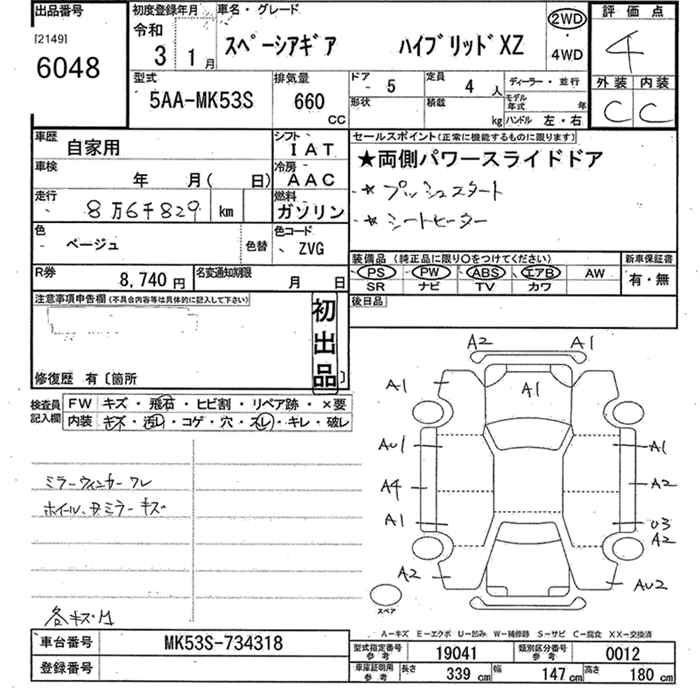 出品番号
[2149]
6048
初度登録年月
令和
3 1月
車名・グレード
スペーシアギア ハイブリッドXZ
2WD
・
4WD
評価点
4
外装 内装
C C
型式
5AA-MK53S
排気量
660
CC
ドア
5
定員
4 人
形状
積載
kg
ディーラー・並行
モデル年式 年
ハンドル 左・右
車歴
自家用
シフト
IAT
車検
年 月( 日)
冷房
AAC
走行
8万6千829 km
燃料
ガソリン
色
ベージュ
色替
色コード
ZVG
R券
8,740 円
名変通知期限
月 日
セールスポイント(正常に機能するものに限ります)
★両側パワースライドドア
★ プッシュスタート
★ シートヒーター
装備品(純正品に限り○をつけてください)
新車保証書
PS PW ABS エアB AW
SR ナビ TV カワ
有・無
後日品
注意事項申告欄(不具合内容等は具体的に記入して下さい)
初出品
修復歴 有〔箇所 〕
検査員記入欄
FW キズ・飛石・ヒビ割・リペア跡・×要
内装 キズ・汚レ・コゲ・穴・スレ・キレ・破レ
ミラーウィンカーワレ
ホイール、ドアミラーキズ
各キズ凹
A2 A1
A1 A1
AU1 A1
A4 A2
A1 U3
A2
A2 AU2
スペア
A-キズ E-エクボ U-凹み W-補修跡 S-サビ C-腐食 XX-交換済
車台番号
MK53S-734318
登録番号
型式指定番号
参考
19041
類別区分番号
参考
0012
車庫証明用
参考
長さ 339 cm 幅 147 cm 高さ 180 cm